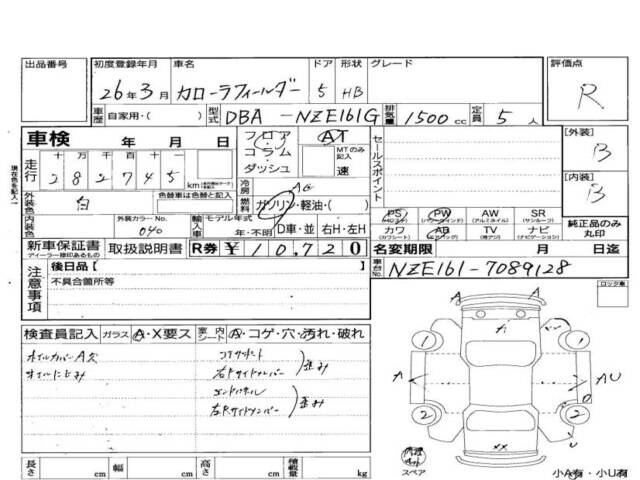 出品番号 初度登録年月 車名 ドア 形状 グレード 評価点
26年3月 カローラフィールダー 5 HB R
車歴 自家用・( ) 型式 DBA-NZE161G 排気量 1500cc 定員 5人
車検 年 月 日 フロア AT セールスポイント [外装]
コラム MTのみ記入 B
ダッシュ 速
走行 十 万 千 百 十 一
2 8 2 7 4 5 km
冷房 AC [内装]
外装色 白 色替車は色替と記入 燃料 ガソリン・軽油・( ) B
内装色 外装カラーNo. 040 輸入車 モデル年式 年・不明 D車・並 右H・左H
PS PW AW SR
(パワーウィンドウ) (アルミホイル) (サンルーフ)
カワ AB TV ナビ
(カワシート) (エアバッグ) 純正品のみ丸印
新車保証書 取扱説明書 R券 ¥10,720 名変期限 月 日迄
ディーラー捺印あるもの
現在色を記入→
注意事項 後日品[ ] 車台No. NZE161-7089128
不具合箇所等 ロック車
検査員記入 ガラス A・X要ス 室内 シート A・コゲ・穴・汚れ・破れ
オイルにじみ
右Fサイドメンバー 歪み
エンドパネル
右Rサイドメンバー 歪み
A A
1 1
A A U
2 2
XX
U
スペア
小A有・小U有
長さ cm 幅 cm 高さ cm 積載量 kg